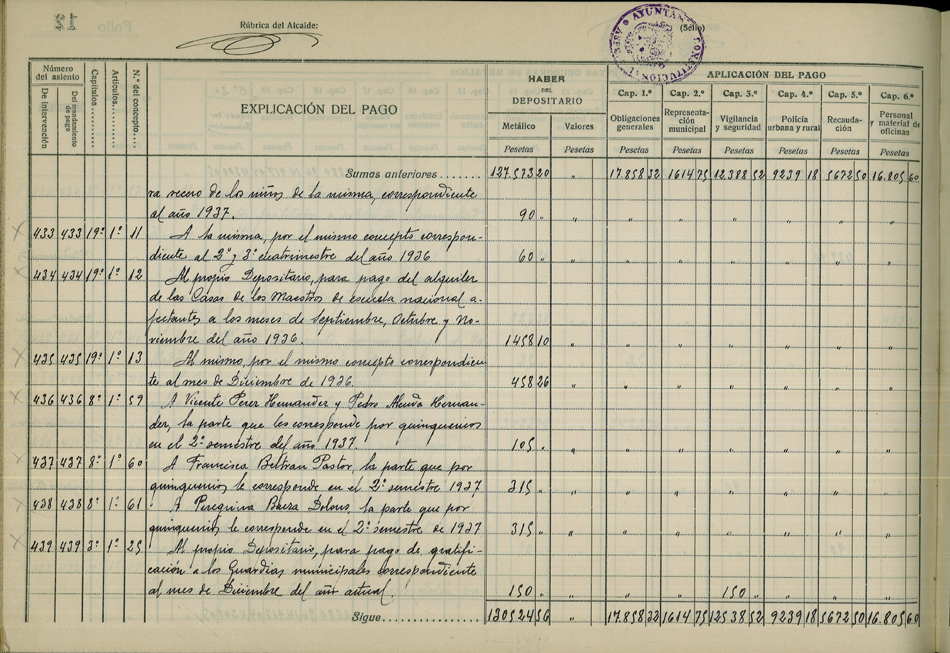 Rúbrica del Alcalde:
(Sello)
AYUNTAMIENTO CONSTITUCIONAL
Número del asiento
De intervención
Del mandamiento de pago
Capítulos.
Artículos.
N.º del concepto.
EXPLICACIÓN DEL PAGO
HABER DEL DEPOSITARIO
Metálico Valores
Pesetas Pesetas
APLICACIÓN DEL PAGO
Cap. 1.º Cap. 2.º Cap. 3.º Cap. 4.º Cap. 5.º Cap. 6.º
Obligaciones generales Representación municipal Vigilancia y seguridad Policía urbana y rural Recaudación Personal y material de oficinas
Pesetas Pesetas Pesetas Pesetas Pesetas Pesetas
Sumas anteriores 127.573 20 " 17.858 32 1614 75 12.388 52 9239 18 5672 50 16.805 60
ra recreo de los niños de la misma, correspondiente
al año 1937. 90 " " " " " " " "
433 433 19º 1º 11 A la misma, por el mismo concepto correspon-
diente al 2º y 3º cuatrimestre del año 1936 60 " " " " " " " "
434 434 19º 1º 12 Al propio Depositario, para pago del alquiler
de las Casas de los Maestros de escuela nacional a-
fectantes a los meses de Septiembre, Octubre y No-
viembre del año 1936. 1458 10 " " " " " " "
435 435 19º 1º 13 Al mismo, por el mismo concepto correspondien-
te al mes de Diciembre de 1936. 458 26 " " " " " " "
436 436 8º 1º 59 A Vicente Perez Hernandez y Pedro Hernan-
dez, la parte que les corresponde por quinquenios
en el 2º semestre del año 1937. 105 " " " " " " " "
437 437 8º 1º 60 A Francisca Beltran Pastor, la parte que por
quinquenios le corresponde en el 2º semestre 1937 315 " " " " " " " "
438 438 8º 1º 61 A Peregrina Dolons, la parte que por
quinquenios le corresponde en el 2º semestre de 1937 315 " " " " " " " "
439 439 3º 1º 25 Al propio Depositario, para pago de gratifi-
cación a los Guardias municipales correspondiente
al mes de Diciembre del año actual. 150 " " " " 150 " " " "
Sigue 130524 56 " 17.858 32 1614 75 12538 52 9239 18 5672 50 16.805 60